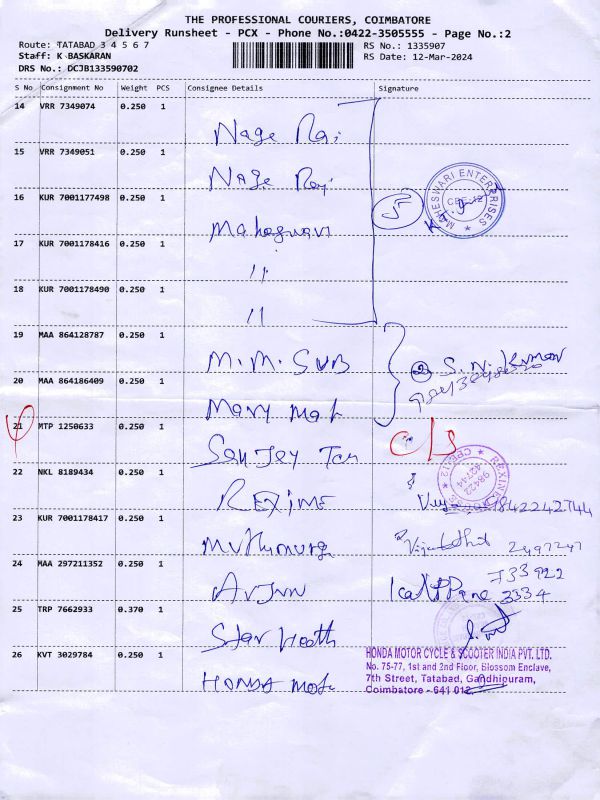 THE PROFESSIONAL COURIERS, COIMBATORE
Delivery Runsheet - PCX - Phone No.:0422-3505555 - Page No.:2
Route: TATABAD 3 4 5 6 7 RS No.: 1335907
Staff: K BASKARAN RS Date: 12-Mar-2024
DRS No.: DCJB133590702
S No Consignment No Weight PCS Consignee Details Signature
14 VRR 7349074 0.250 1
Nage Raj
15 VRR 7349051 0.250 1
Nage Raj
16 KUR 7001177498 0.250 1
5 MAHESWARI ENTERPRISES CBE-12
Maheswari
17 KUR 7001178416 0.250 1
11
18 KUR 7001178490 0.250 1
11
19 MAA 864128787 0.250 1
M.M. SUB 2 S.N. Kumar
20 MAA 864186409 0.250 1
Mary Mat
21 MTP 1250633 0.250 1 c/s
Sanjey Tan
22 NKL 8189434 0.250 1
REXIME 9842242744
23 KUR 7001178417 0.250 1
Muthumurga 2497247
24 MAA 297211352 0.250 1 733922
Arjun 3334
25 TRP 7662933 0.370 1
Star Health
26 KVT 3029784 0.250 1 HONDA MOTOR CYCLE & SCOOTER INDIA PVT. LTD.
No. 75-77, 1st and 2nd Floor, Blossom Enclave,
7th Street, Tatabad, Gandhipuram,
HONDA Mot Coimbatore - 641 012